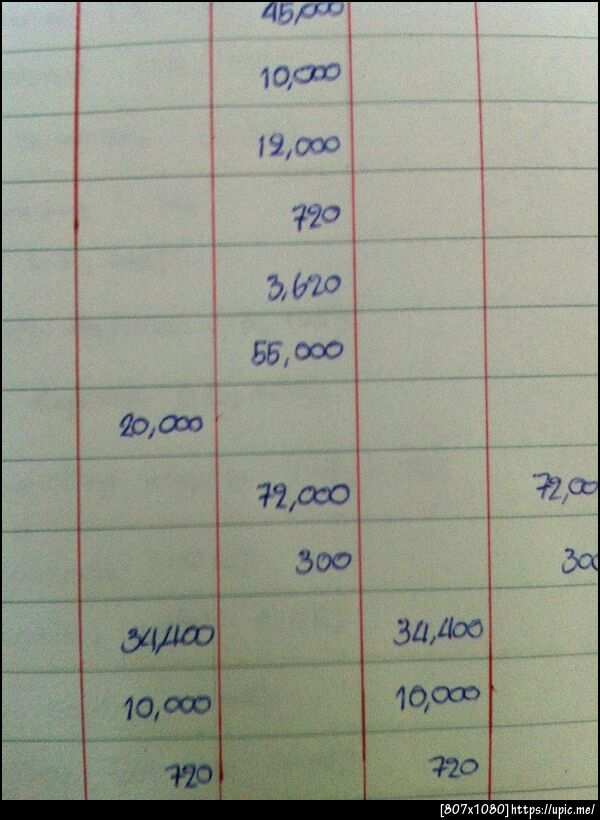 45,000
10,000
12,000
720
3,620
55,000
20,000
72,000 72,00
300 300
34,400 34,400
10,000 10,000
720 720
[807x1080]https://upic.me/